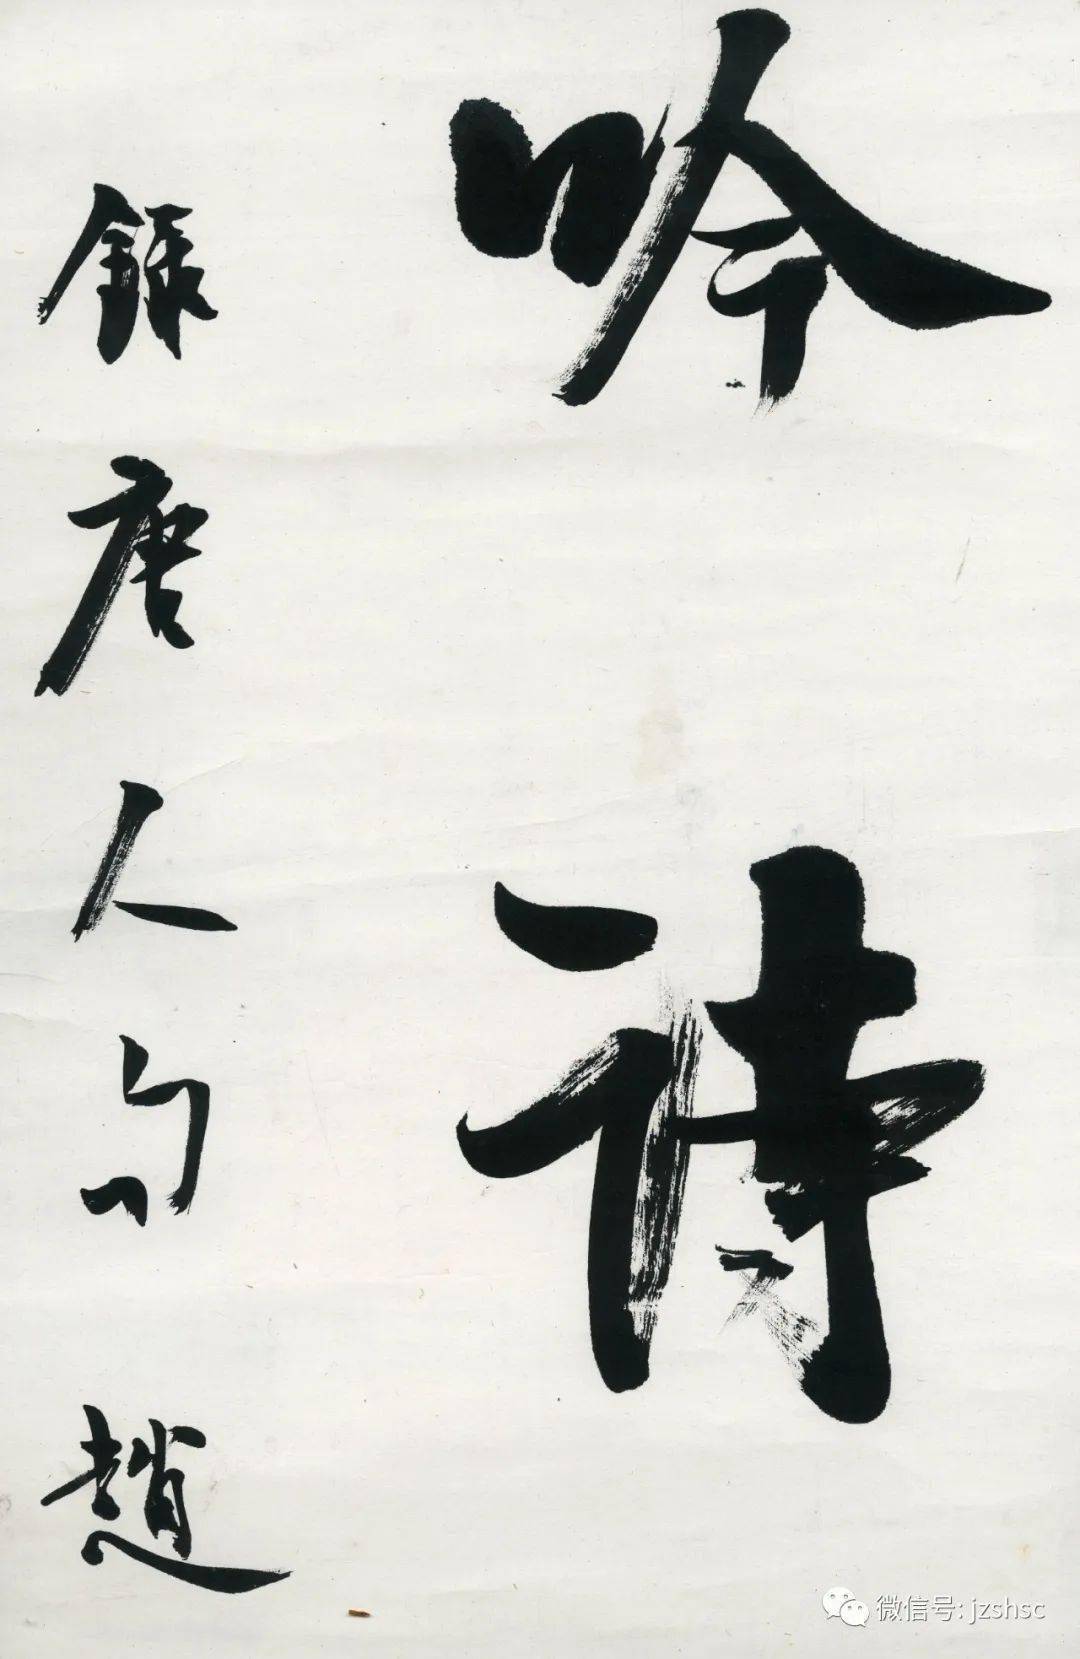 吟詩
録唐人句趙
微信号: jzshsc